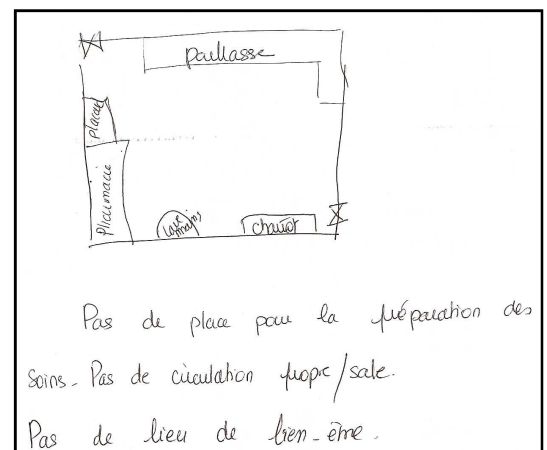 Paillasse
Placard
Pharmacie
Lave
mains
chariot
Pas de place pour la préparation des
soins. Pas de circulation propre/sale.
Pas de lieu de bien-être.